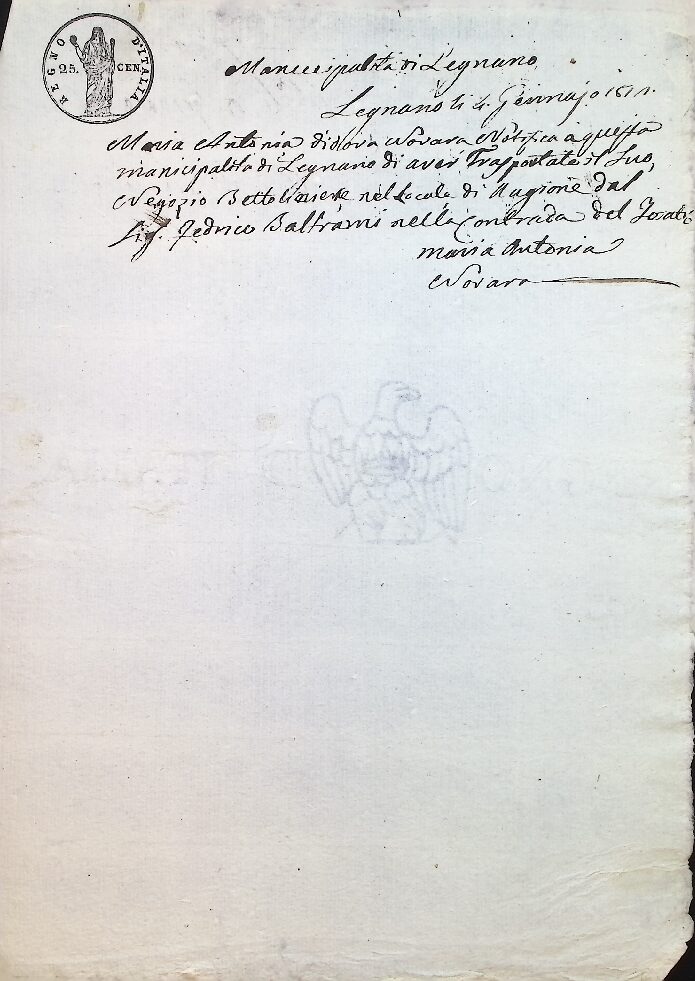 REGNO D'ITALIA
25. CEN.
Manccipalita di Legnano
Legnano li 4. Gennajo 1811.
Maria Antonia didova Novara Notifica a questa
manicipalita di Legnano di aver Trasportato il Suo,
Negozio Bettoliniere nel Locale di Ragione dal
Sig. Fedrico Baltrami nella Contrada del
maria Antonia
Novara